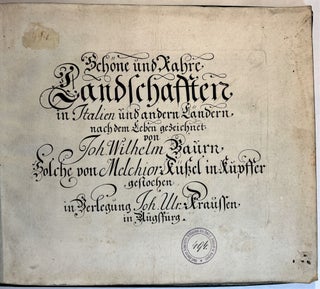 Schöne und Rahre
Landschafften
in Italien und andern Ländern
nach dem Leben gezeichnet
von
Joh. Wilhelm Baürn.
Solche von Melchior Küßel in Kupffer
gestochen
in Verlegung Joh. Ulr. Kraüssen
in Augspurg.
194.